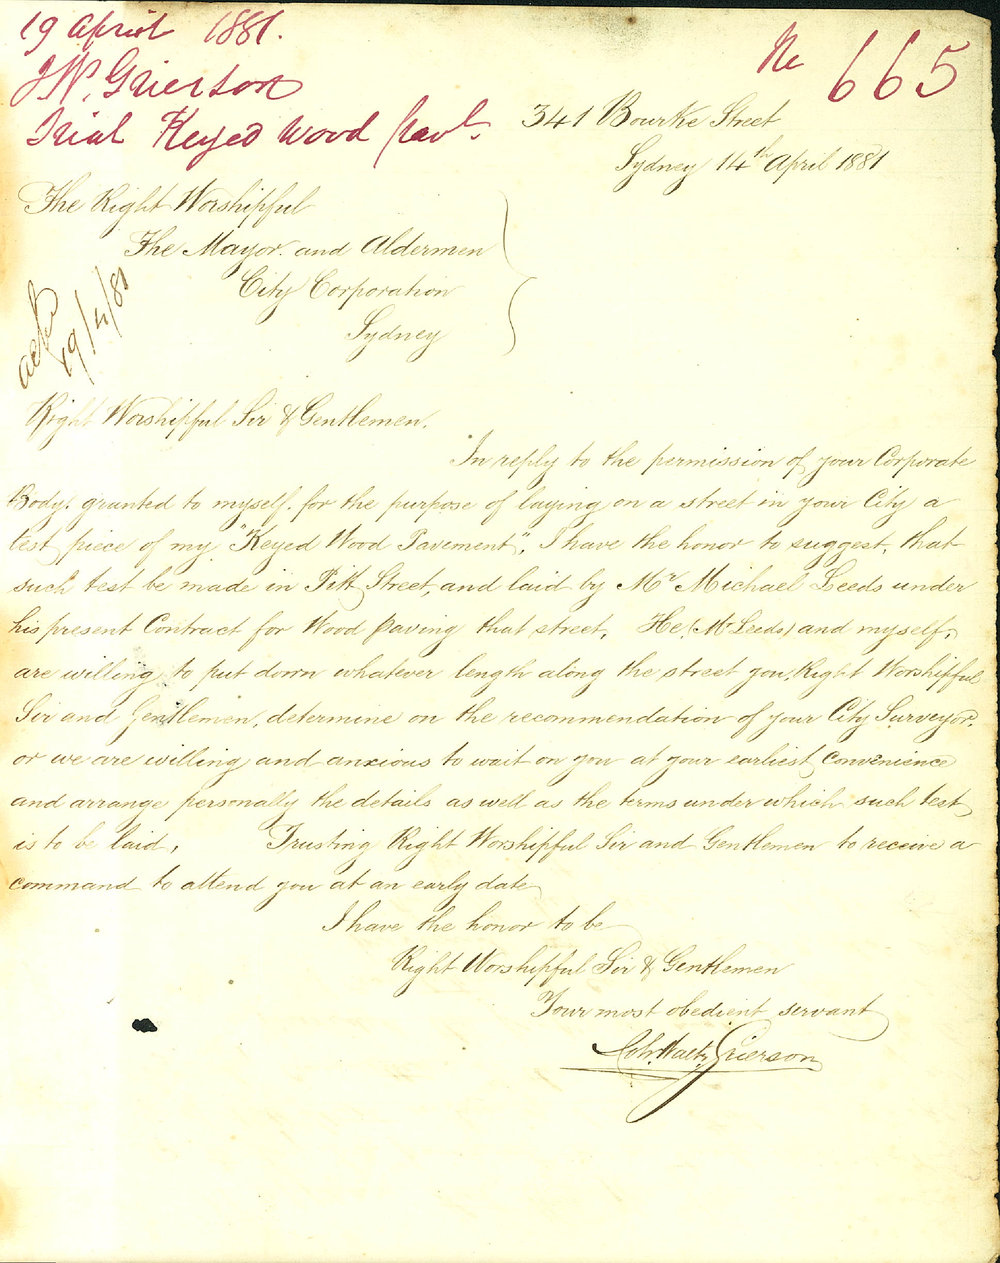 19 April 1881.
No 665
J W. Grierson
Trial Keyed Wood Pavt.
341 Bourke Street
Sydney 14th April 1881
The Right Worshipful
The Mayor and Aldermen
City Corporation
Sydney
19/4/81
Right Worshipful Sir & Gentlemen.
In reply to the permission of your Corporate
Body, granted to myself, for the purpose of laying on a street in your City a
test piece of my "Keyed Wood Pavement", I have the honor to suggest, that
such test be made in Pitt Street, and laid by Mr Michael Leeds under
his present Contract for Wood Paving that street, He, (Mr Leeds) and myself,
are willing to put down whatever length along the street you, Right Worshipful
Sir and Gentlemen, determine on the recommendation of your City Surveyor,
or we are willing and anxious to wait on you at your earliest convenience
and arrange personally the details as well as the terms under which such test
is to be laid, Trusting Right Worshipful Sir and Gentlemen to receive a
command to attend you at an early date
I have the honor to be
Right Worshipful Sir & Gentlemen
Your most obedient servant
Grierson